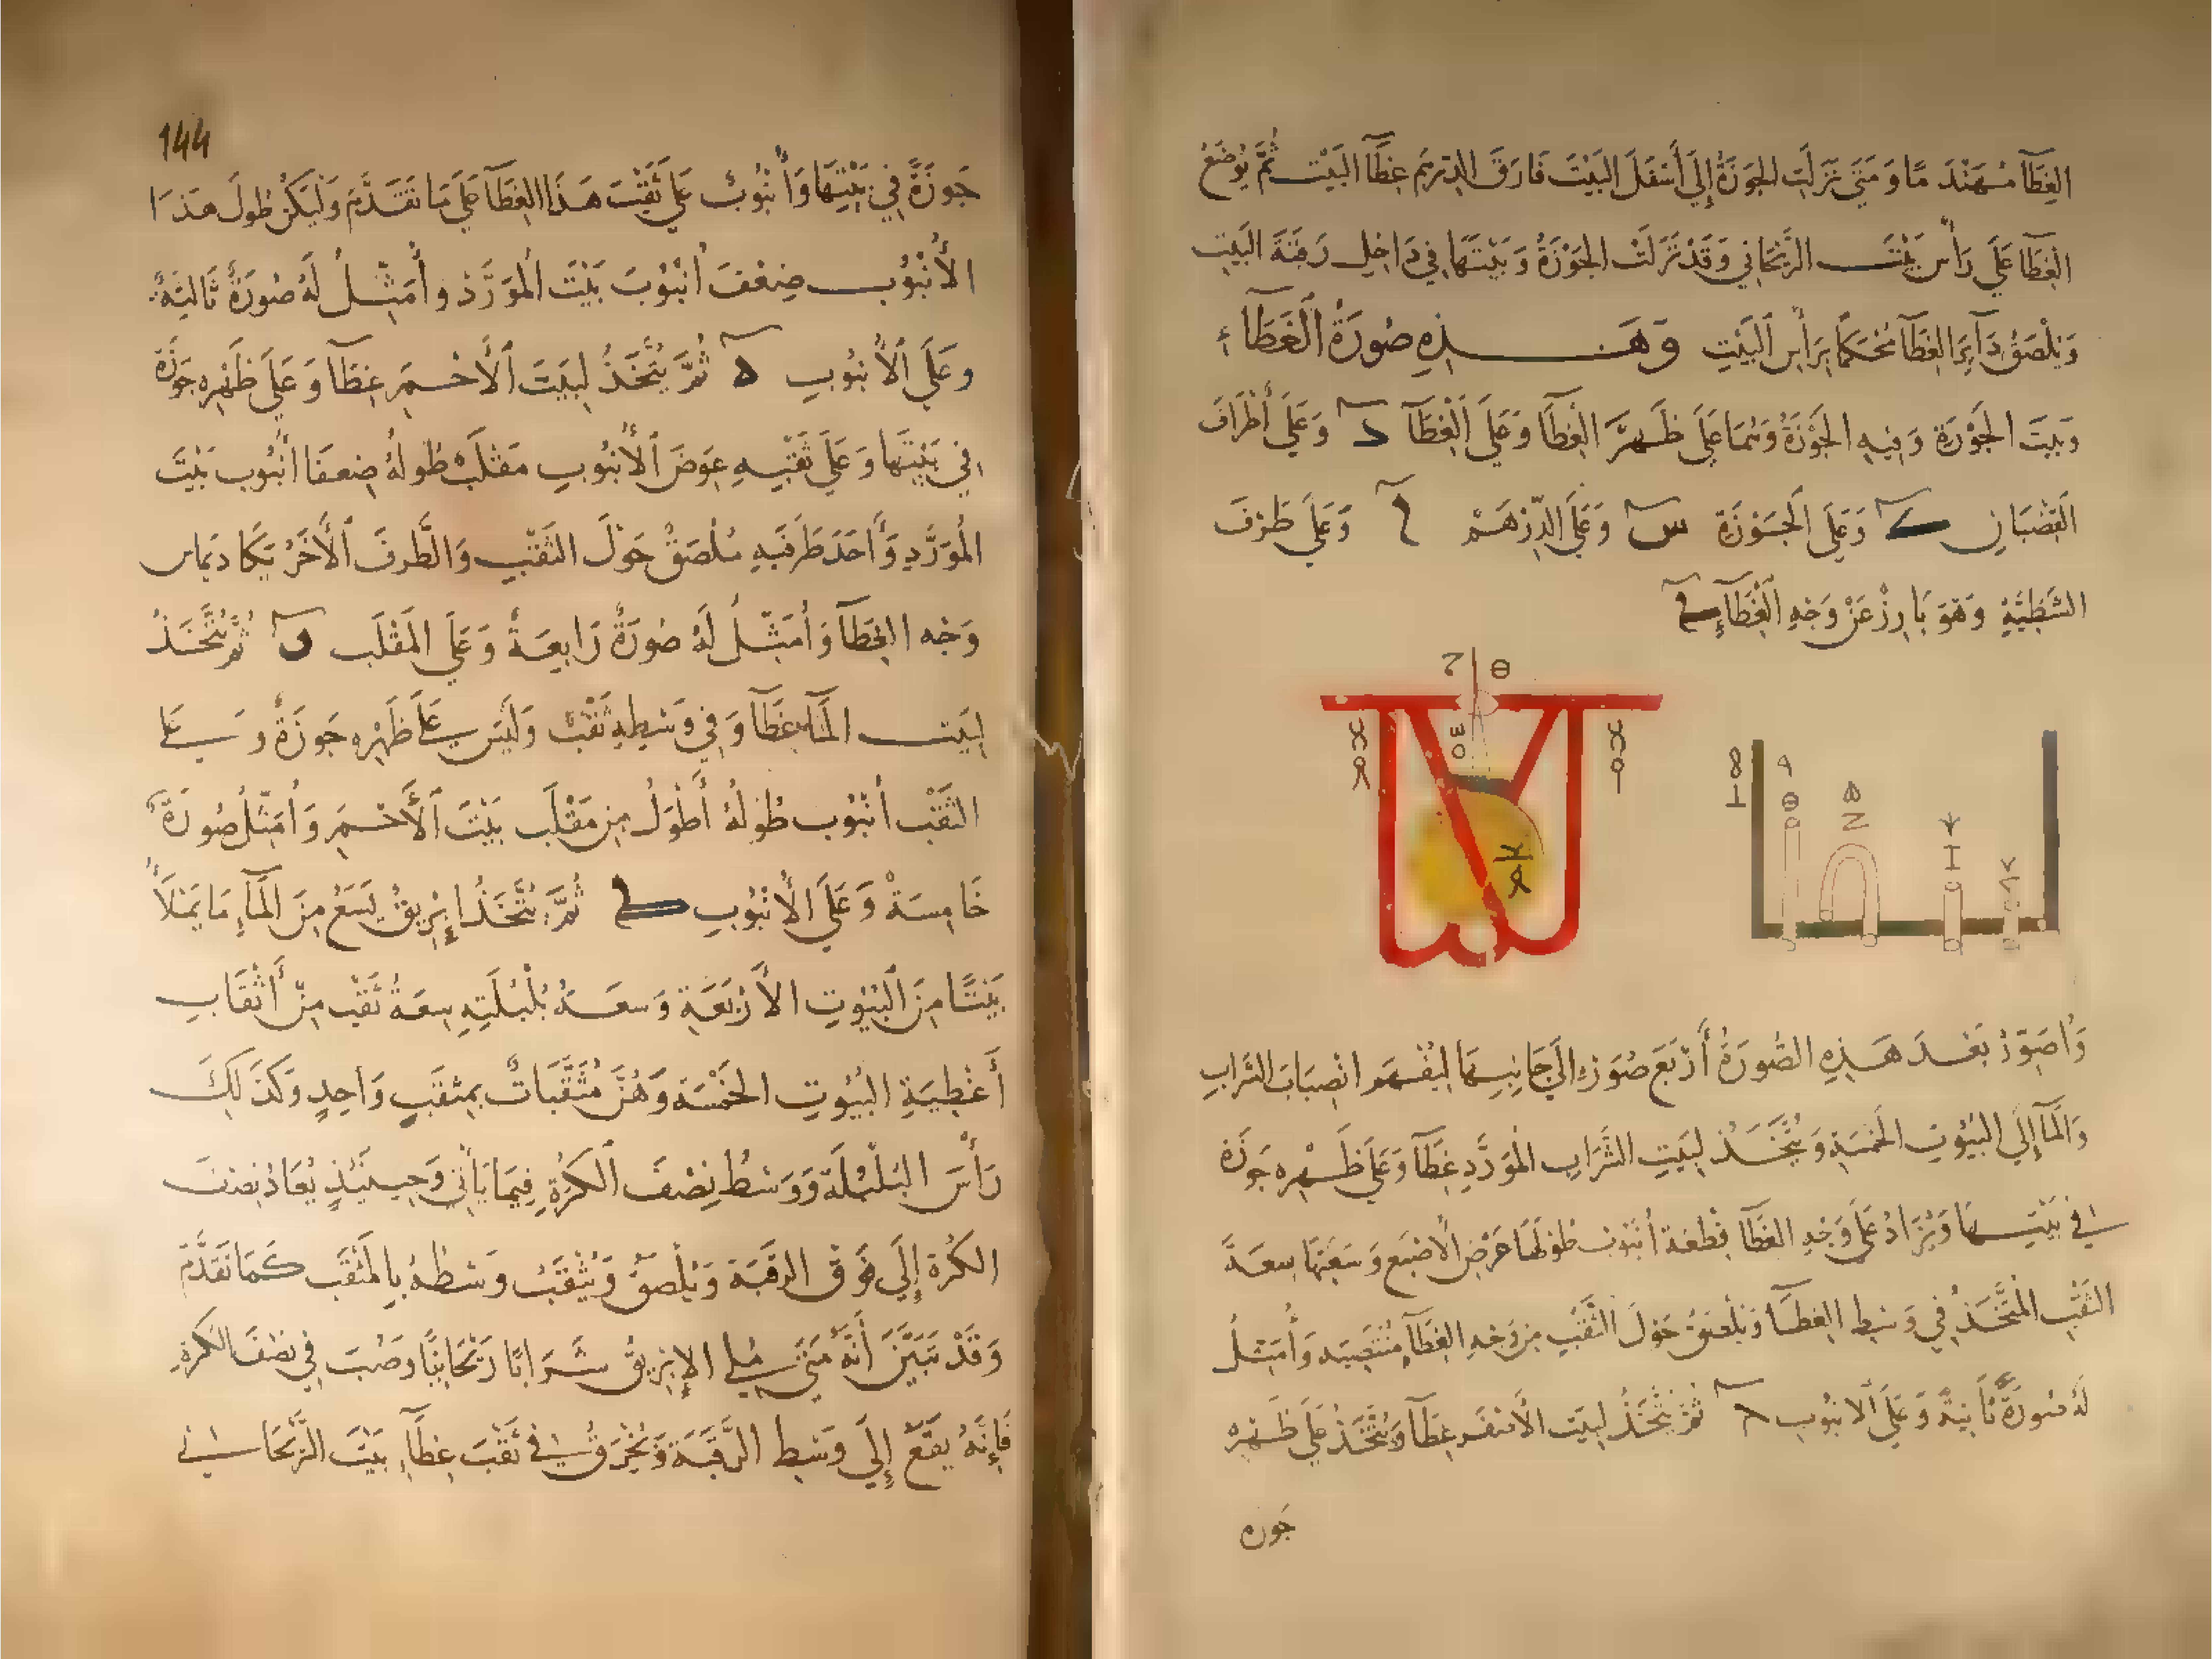 الغِطَآ مُهَنْدَمًا وَمَتَى نَزَلَتِ الجَوزَةُ إِلَى أَسْفَلَ البَيْتَ فَارَقَ الدِرهَم غِطَآ البَيْت ثُمَّ يُوضَعُ
الغِطَا عَلَى رَأس بَيْتَ الرَّيْحَاني وَقَدْ نَزَلَتْ الجَوْزَةُ وَبَيْتُهَا فِي دَاخِل رَقَبَةَ البَيتِ
وَيُلْصَقُ دَآيِرَ الغِطَآ مُحْكَمًا بِرَأسِ البَيْتِ وَهَذِهِ صُورَةُ الغِطَآء
وَبيت الجَوْزَة وَفِيهِ الجَوْزَةُ وَهُمَا عَلَى ظَهْر الغِطَا وَعَلَى الغِطَآ د وَعَلَى أَطْرَافَ
القُضْبَانِ ك وَعَلَى الجَوْزَة س وَعَلَى الدِّرْهَمْ ل وَعَلَى طَرَفَ
الشَّظِيَّةِ وَهُوَ بَارِزْ عَنْ وَجْهِ الغِطَآءِ ع
وَأُصَوِّرُ بَعْدَ هَذِهِ الصُّورَةُ أَرْبَعَ صُوَرٍ إِلَى جَانِبِهَا لِيُفْهَم انْصِبَابَ الشَّرَابِ
وَالمَآ إِلَى البُيُوتِ الخَمْسَةِ وَيُتَّخَذُ لِبَيْتِ الشَّرَابِ المُوَرَّدِ غِطَآ وَعَلَى ظَهْرِهِ جَوزَة
في بَيْتِهَا وَيُزَادُ عَلَى وَجْهِ الغِطَآ قِطْعَة أُنْبُوبْ طُولُهَا عَرْضِ الأصْبَع وَسَعَتُهَا سِعَةَ
الثُقْبِ المُتَّخَذُ فِي وَسَطِ الغِطَآ وَيُلْصَقُ حَوْلَ الثُّقْبْ مِن وَجْهِ الغِطَآ مُنْتَصِبَه وَأُمَثِلُ
لَهُ صُورَةً ثَانِيةً وَعَلَى الأنبُوب م ثُمَّ يُتَّخَذُ لِبَيْت الأَصْفَر غِطَآ وَيُتَّخَذُ عَلَى ظَهْرِهِ
جوزه
144
جَوزَةً فِي بَيْتِهَا وَأُنْبُوبٌ عَلَى ثُقْبَ هَذَا الغِطَآ عَلَى مَا تَقَدَّمَ وَلْيَكُنْ طُولَ هَذَا
الأُنْبُوب ضِعْفَ أُنْبُوبَ بَيْتَ المُوَرَّدْ وأُمَثِّلُ لَهُ صُورَةً ثَالِثَةً
وَعَلَى الأُنبُوبِ ه ثُمَّ يُتَّخَذُ لِبَيْتَ الأَحْمَرِ غِطَآ وَعَلَى ظَهْرِهِ جَوْزَة
فِي بَيْتِهَا وَعَلَى ثُقْبِهِ عِوَضَ الأُنبُوبِ مَقْلَبْ طُولُهُ ضِعفَا أُنْبُوب بَيْتَ
المُوَرَّدِ وَأَحَدَ طَرَفَيهِ مُلْصَقٌ حَوْلَ الثَقْبِ وَالطَّرفَ الأَخَرُ يَكَاد يماس
وَجْه الغِطَآ وَأُمَثِّلُ لَهُ صُورَةً رَابِعَةً وَعَلَى المَقْلَب ن ثُمَّ يُتَّخَذُ
لِبَيْت المَآءِ غِطَآ وَفِي وَسْطِهِ ثُقْبٌ وَلَيْسَ عَلَى ظَهْرِهِ جَوزَةٌ وَ عَلى
الثَقْب أُنْبُوب طُولُهُ أَطْوَلُ مِن مَقْلَب بَيْتَ الأَحْمَرِ وَأُمَثِّلُ صُورَةً
خَامِسَةً وَعَلَى الأُنْبُوبِ ط ثُمَّ يُتَّخَذُ إِبْرِيقٌ يَسَعُ مِنَ المَآءِ مَا يَمْلَأَ
بَيْتًا مِنَ البُيُوتِ الأَرْبَعَةِ وَسعَةُ بُلْبُلَتِهِ سِعَةُ ثَقْب مِنْ أَثْقَابِ
أَغْطِيَةِ البُيُوتِ الخَمْسَة وَهُنَّ مُثَقَّبَاتٌ بِمِثْقَبٍ وَاحِدٍ وَكَذَلِكَ
رَأسَ البُلْبُلَة وَوَسْطُ نِصْفَ الكُرَةِ فِيمَا يَأتِي وَحِينَئِذٍ يُعَادُ نِصْفَ
الكُرَة إِلَى فَوقَ الرقَبَة وَيُلْصَقُ وَيُثْقَبُ وَسْطُهُ بِالمِثْقَبِ كَمَا تَقَدَّمَ
وَقَدْ تَبَيَّنَ أَنَّهُ مَتَى مُلِى الإبْرِيقُ شَرَابًا رَيْحَانِيًا وَصُبَّ فِي نصْفَ الكُرَةِ
فَإِنَّهُ يَقَعُ إِلَى وَسْطِ الرَّقَبَةِ وَيُخْرَقُ فِي ثُقْبَ غِطَآءِ بَيْتَ الرَّيْحَانِي